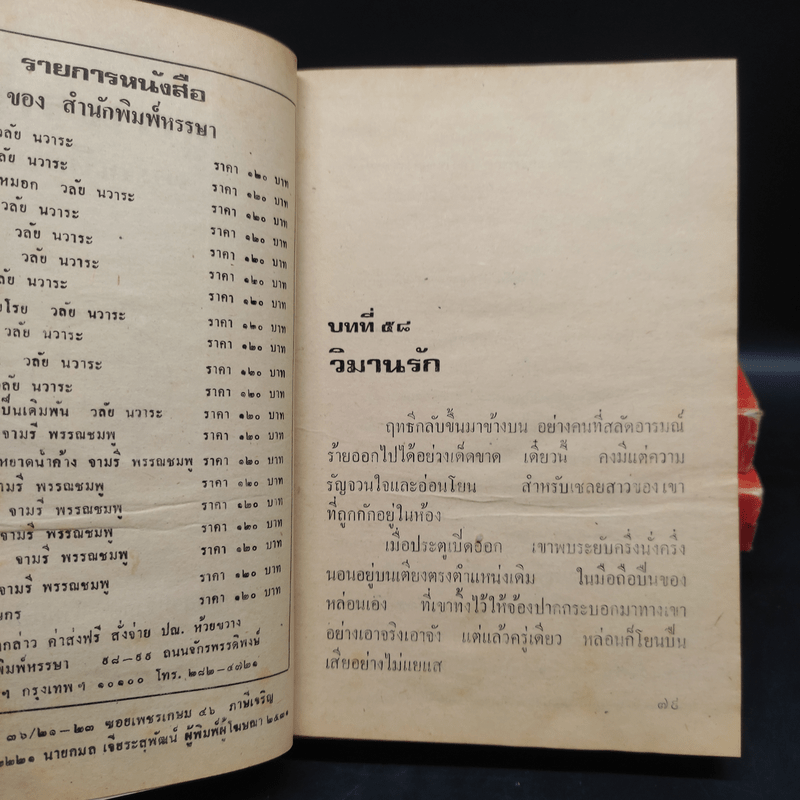 รายการหนังสือ
ของ สำนักพิมพ์หรรษา
วลัย นวาระ ราคา ๑๒๐ บาท
วลัย นวาระ ราคา ๑๒๐ บาท
หมอก วลัย นวาระ ราคา ๑๒๐ บาท
วลัย นวาระ ราคา ๑๒๐ บาท
วลัย นวาระ ราคา ๑๒๐ บาท
วลัย นวาระ ราคา ๑๒๐ บาท
วลัย นวาระ ราคา ๑๒๐ บาท
โรย วลัย นวาระ ราคา ๑๒๐ บาท
วลัย นวาระ ราคา ๑๒๐ บาท
วลัย นวาระ ราคา ๑๒๐ บาท
วลัย นวาระ ราคา ๑๒๐ บาท
เป็นเดิมพัน วลัย นวาระ ราคา ๑๒๐ บาท
จามรี พรรณชมพู ราคา ๑๒๐ บาท
หยาดน้ำค้าง จามรี พรรณชมพู ราคา ๑๒๐ บาท
จามรี พรรณชมพู ราคา ๑๒๐ บาท
จามรี พรรณชมพู ราคา ๑๒๐ บาท
จามรี พรรณชมพู ราคา ๑๒๐ บาท
จามรี พรรณชมพู ราคา ๑๒๐ บาท
จามรี พรรณชมพู ราคา ๑๒๐ บาท
ราคา ๑๒๐ บาท
กล่าว ค่าส่งฟรี สั่งจ่าย ปณ. ห้วยขวาง
พิมพ์หรรษา ๙๘–๙๙ ถนนจักรพรรดิพงษ์
ฯ กรุงเทพฯ ๑๐๑๐๐ โทร. ๒๘๒–๔๗๒๑
๓๖/๒๑–๒๓ ซอยเพชรเกษม ๔๖ ภาษีเจริญ
นายกมล ผู้พิมพ์ผู้โฆษณา
บทที่ ๕๘
วิมานรัก
ฤทธิ์กลับขึ้นมาข้างบน อย่างคนที่สลัดอารมณ์
ร้ายออกไปได้อย่างเด็ดขาด เดี๋ยวนี้ คงมีแต่ความ
รัญจวนใจและอ่อนโยน สำหรับเชลยสาวของเขา
ที่ถูกกักอยู่ในห้อง
เมื่อประตูเปิดออก เขาพบระยับครึ่งนั่งครึ่ง
นอนอยู่บนเตียงตรงตำแหน่งเดิม ในมือถือปืนของ
หล่อนเอง ที่เขาทิ้งไว้ให้จ้องปากกระบอกมาทางเขา
อย่างเอาจริงเอาจัง แต่แล้วครู่เดียว หล่อนก็โยนปืน
เสียอย่างไม่แยแส
๗๙